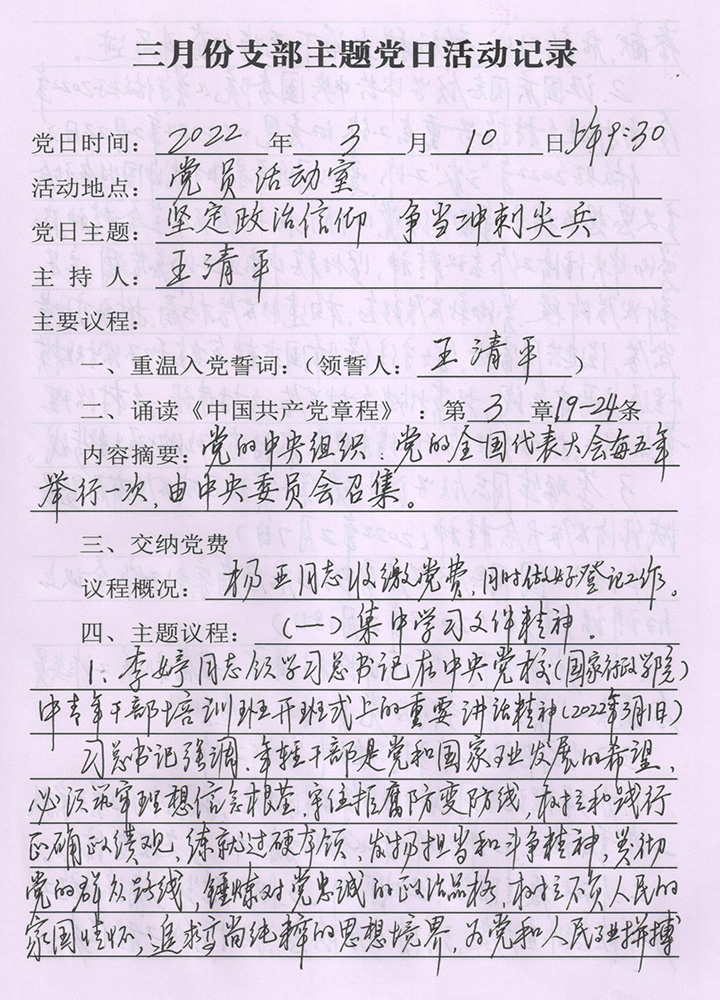 三月份支部主题党日活动记录
党日时间：2022 年 3 月 10 日上午9:30
活动地点：党员活动室
党日主题：坚定政治信仰 争当冲刺尖兵
主 持 人：王清平
主要议程：
一、重温入党誓词：（领誓人：王清平）
二、诵读《中国共产党章程》：第 3 章19-24条
内容摘要：党的中央组织：党的全国代表大会每五年
举行一次，由中央委员会召集。
三、交纳党费
议程概况：杨亚同志收缴党费，同时做好登记工作。
四、主题议程：（一）集中学习文件精神。
1：李婷同志领学习总书记在中央党校（国家行政学院）
中青年干部培训班开班式上的重要讲话精神（2022年3月1日）
习总书记强调，年轻干部是党和国家事业发展的希望，
必须筑牢理想信念根基，守住拒腐防变防线，树立和践行
正确政绩观，练就过硬本领，发扬担当和斗争精神，贯彻
党的群众路线，锤炼对党忠诚的政治品格，树立不负人民的
家国情怀，追求高尚纯粹的思想境界，为党和人民事业拼搏